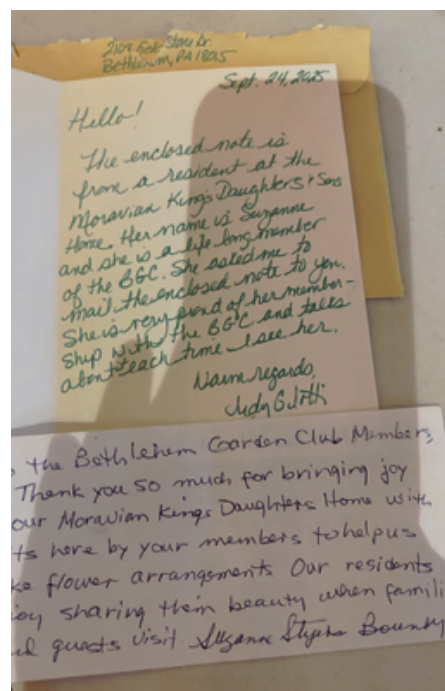 Bethlehem, PA 18015
Sept. 24, 2025
Hello!
The enclosed note is
from a resident at the
Moravian King's Daughters & Sons
Home. Her name is Suzanne
and she is a life long member
of the BGC. She asked me to
mail the enclosed note to you.
She is very proud of her member-
ship with the BGC and talks
about each time I see her.
Warm regards,
Judy
the Bethlehem Garden Club Members,
Thank you so much for bringing joy
our Moravian Kings Daughters Home with
ts here by your members to help us
ke flower arrangements Our residents
oy sharing them beauty when famili
d guests visit Suzanne